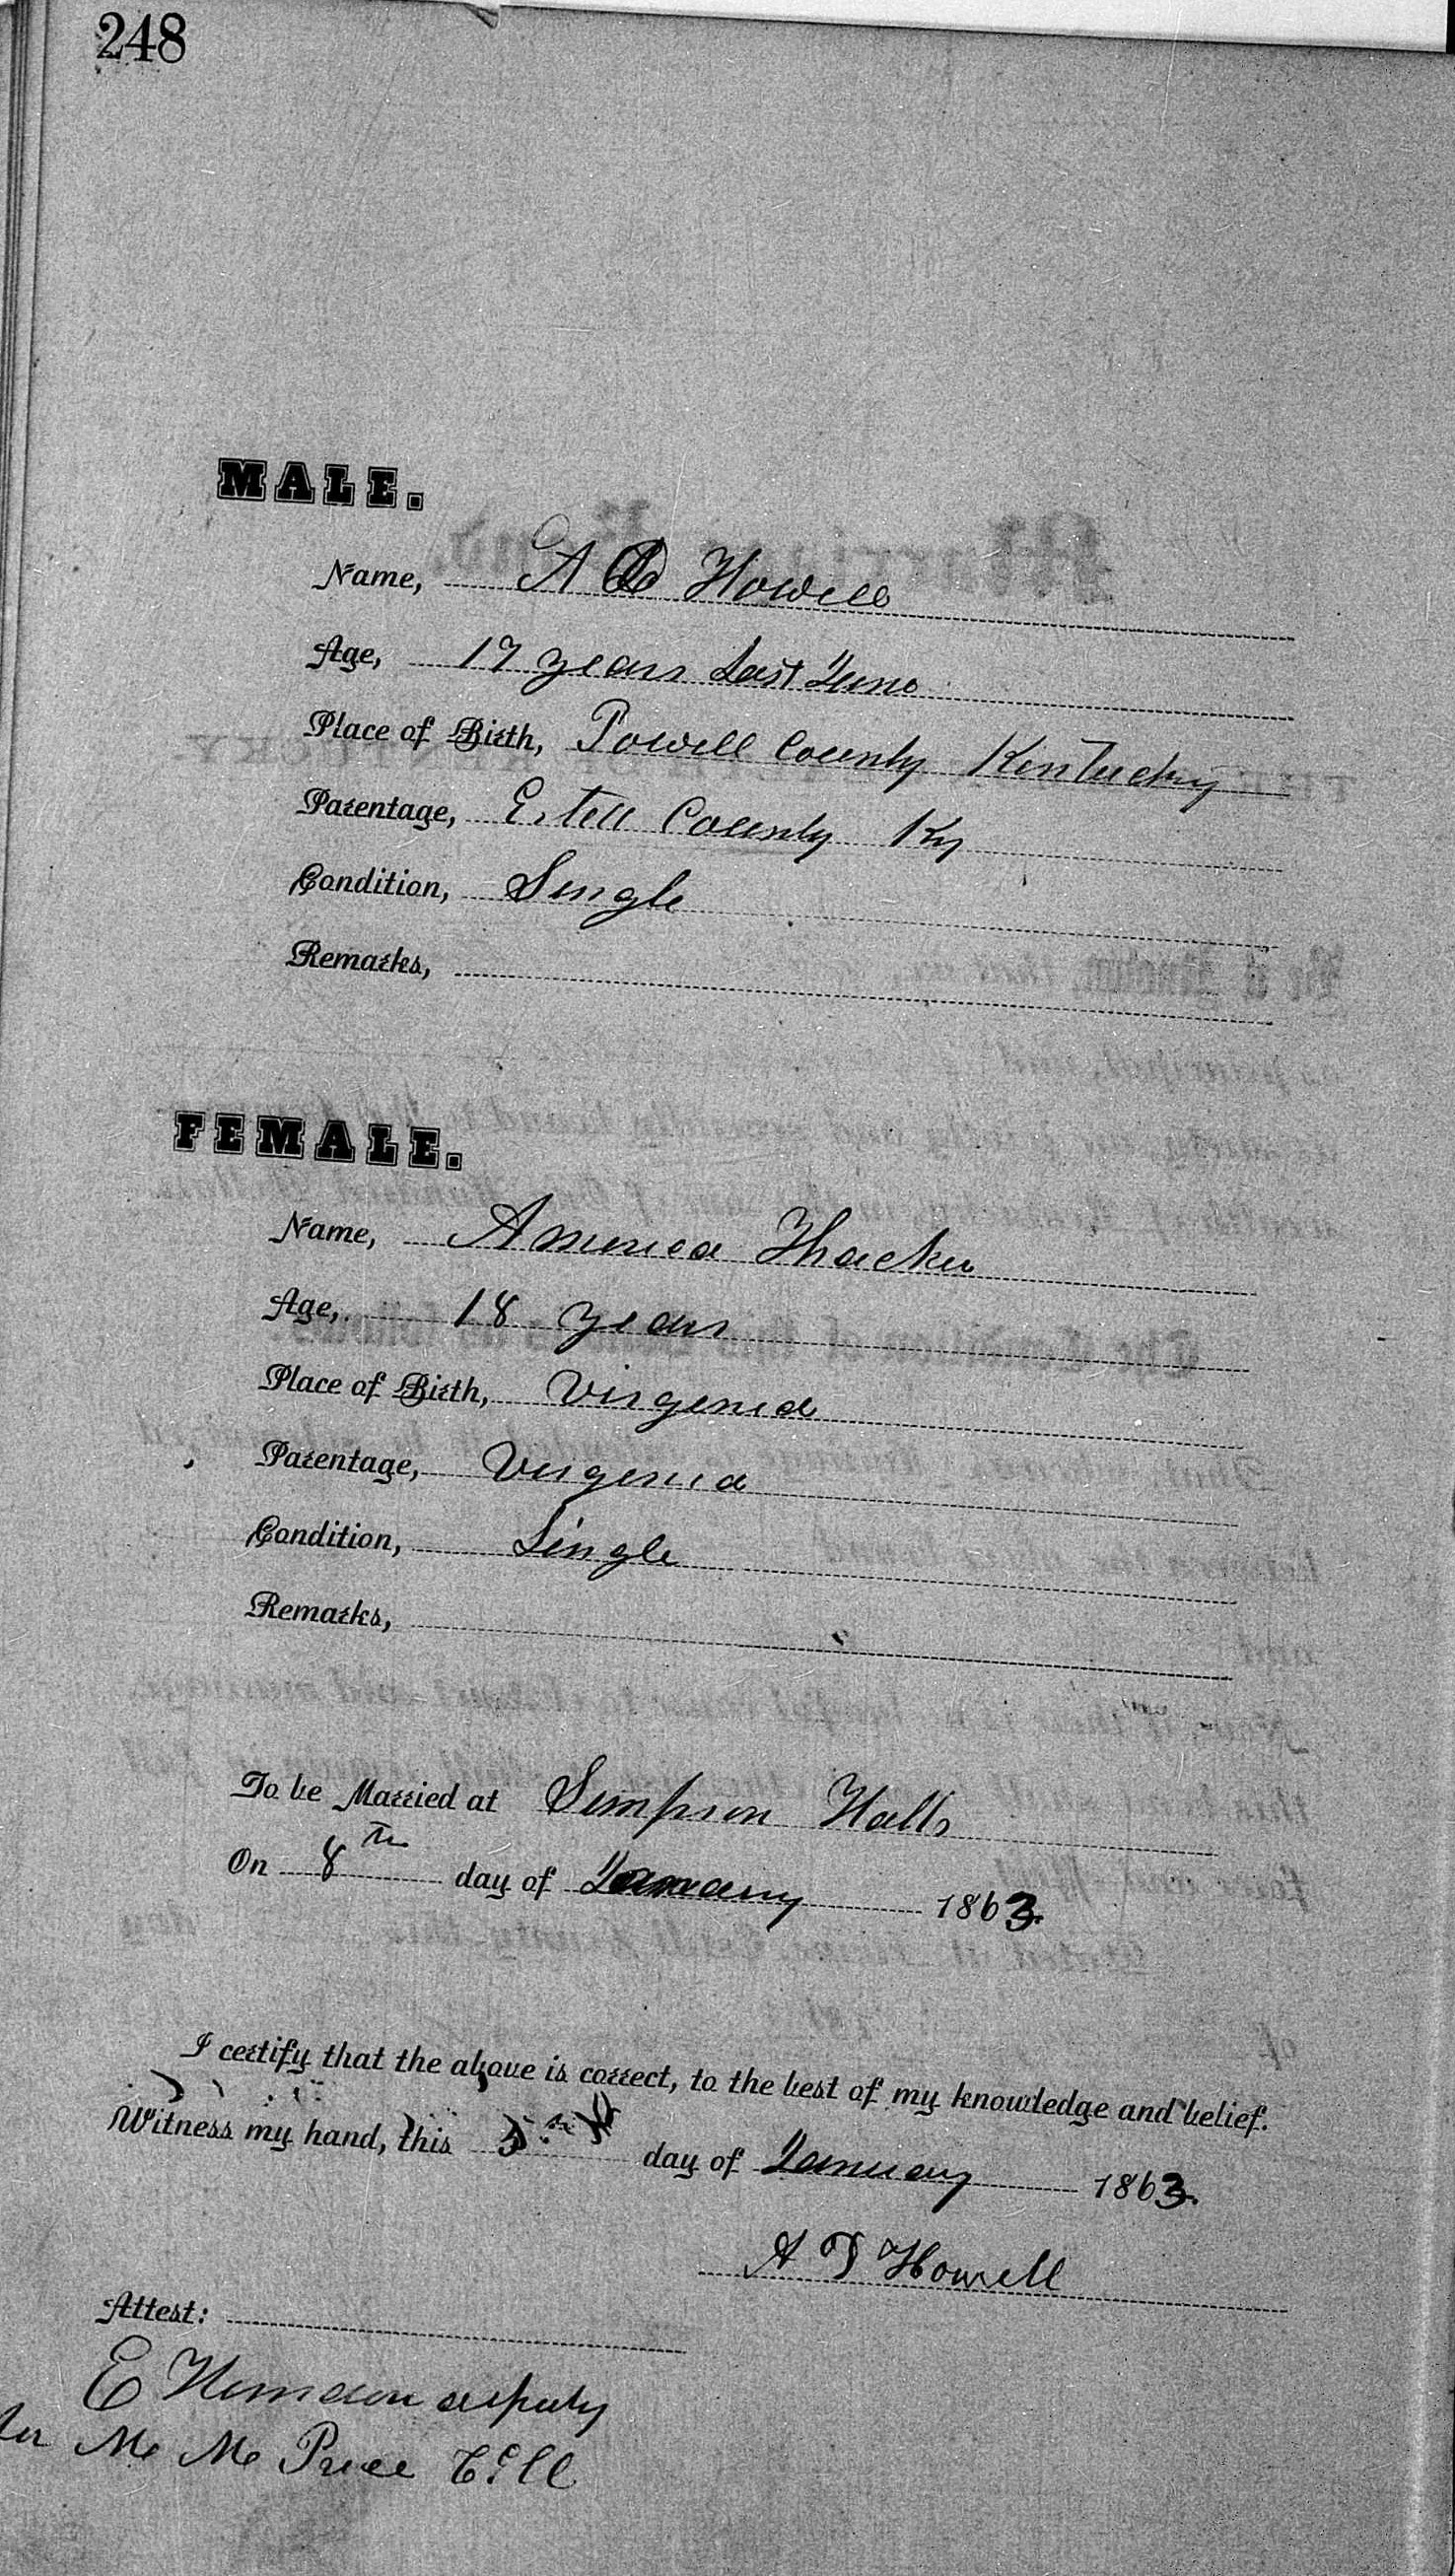 248
MALE.
Name, A D Howell
Age, 19 years Last June
Place of Birth, Powell County Kentucky
Parentage, Estell County Ky
Condition, Single
Remarks,
FEMALE.
Name, America Thacker
Age, 18 years
Place of Birth, Virginia
Parentage, Virginia
Condition, Single
Remarks,
To be Married at Simpson Halls
On 8th day of January 1863.
I certify that the above is correct, to the best of my knowledge and belief.
Witness my hand, this 5th day of January 1863.
A D Howell
Attest:
E Herndon deputy
for M M Price